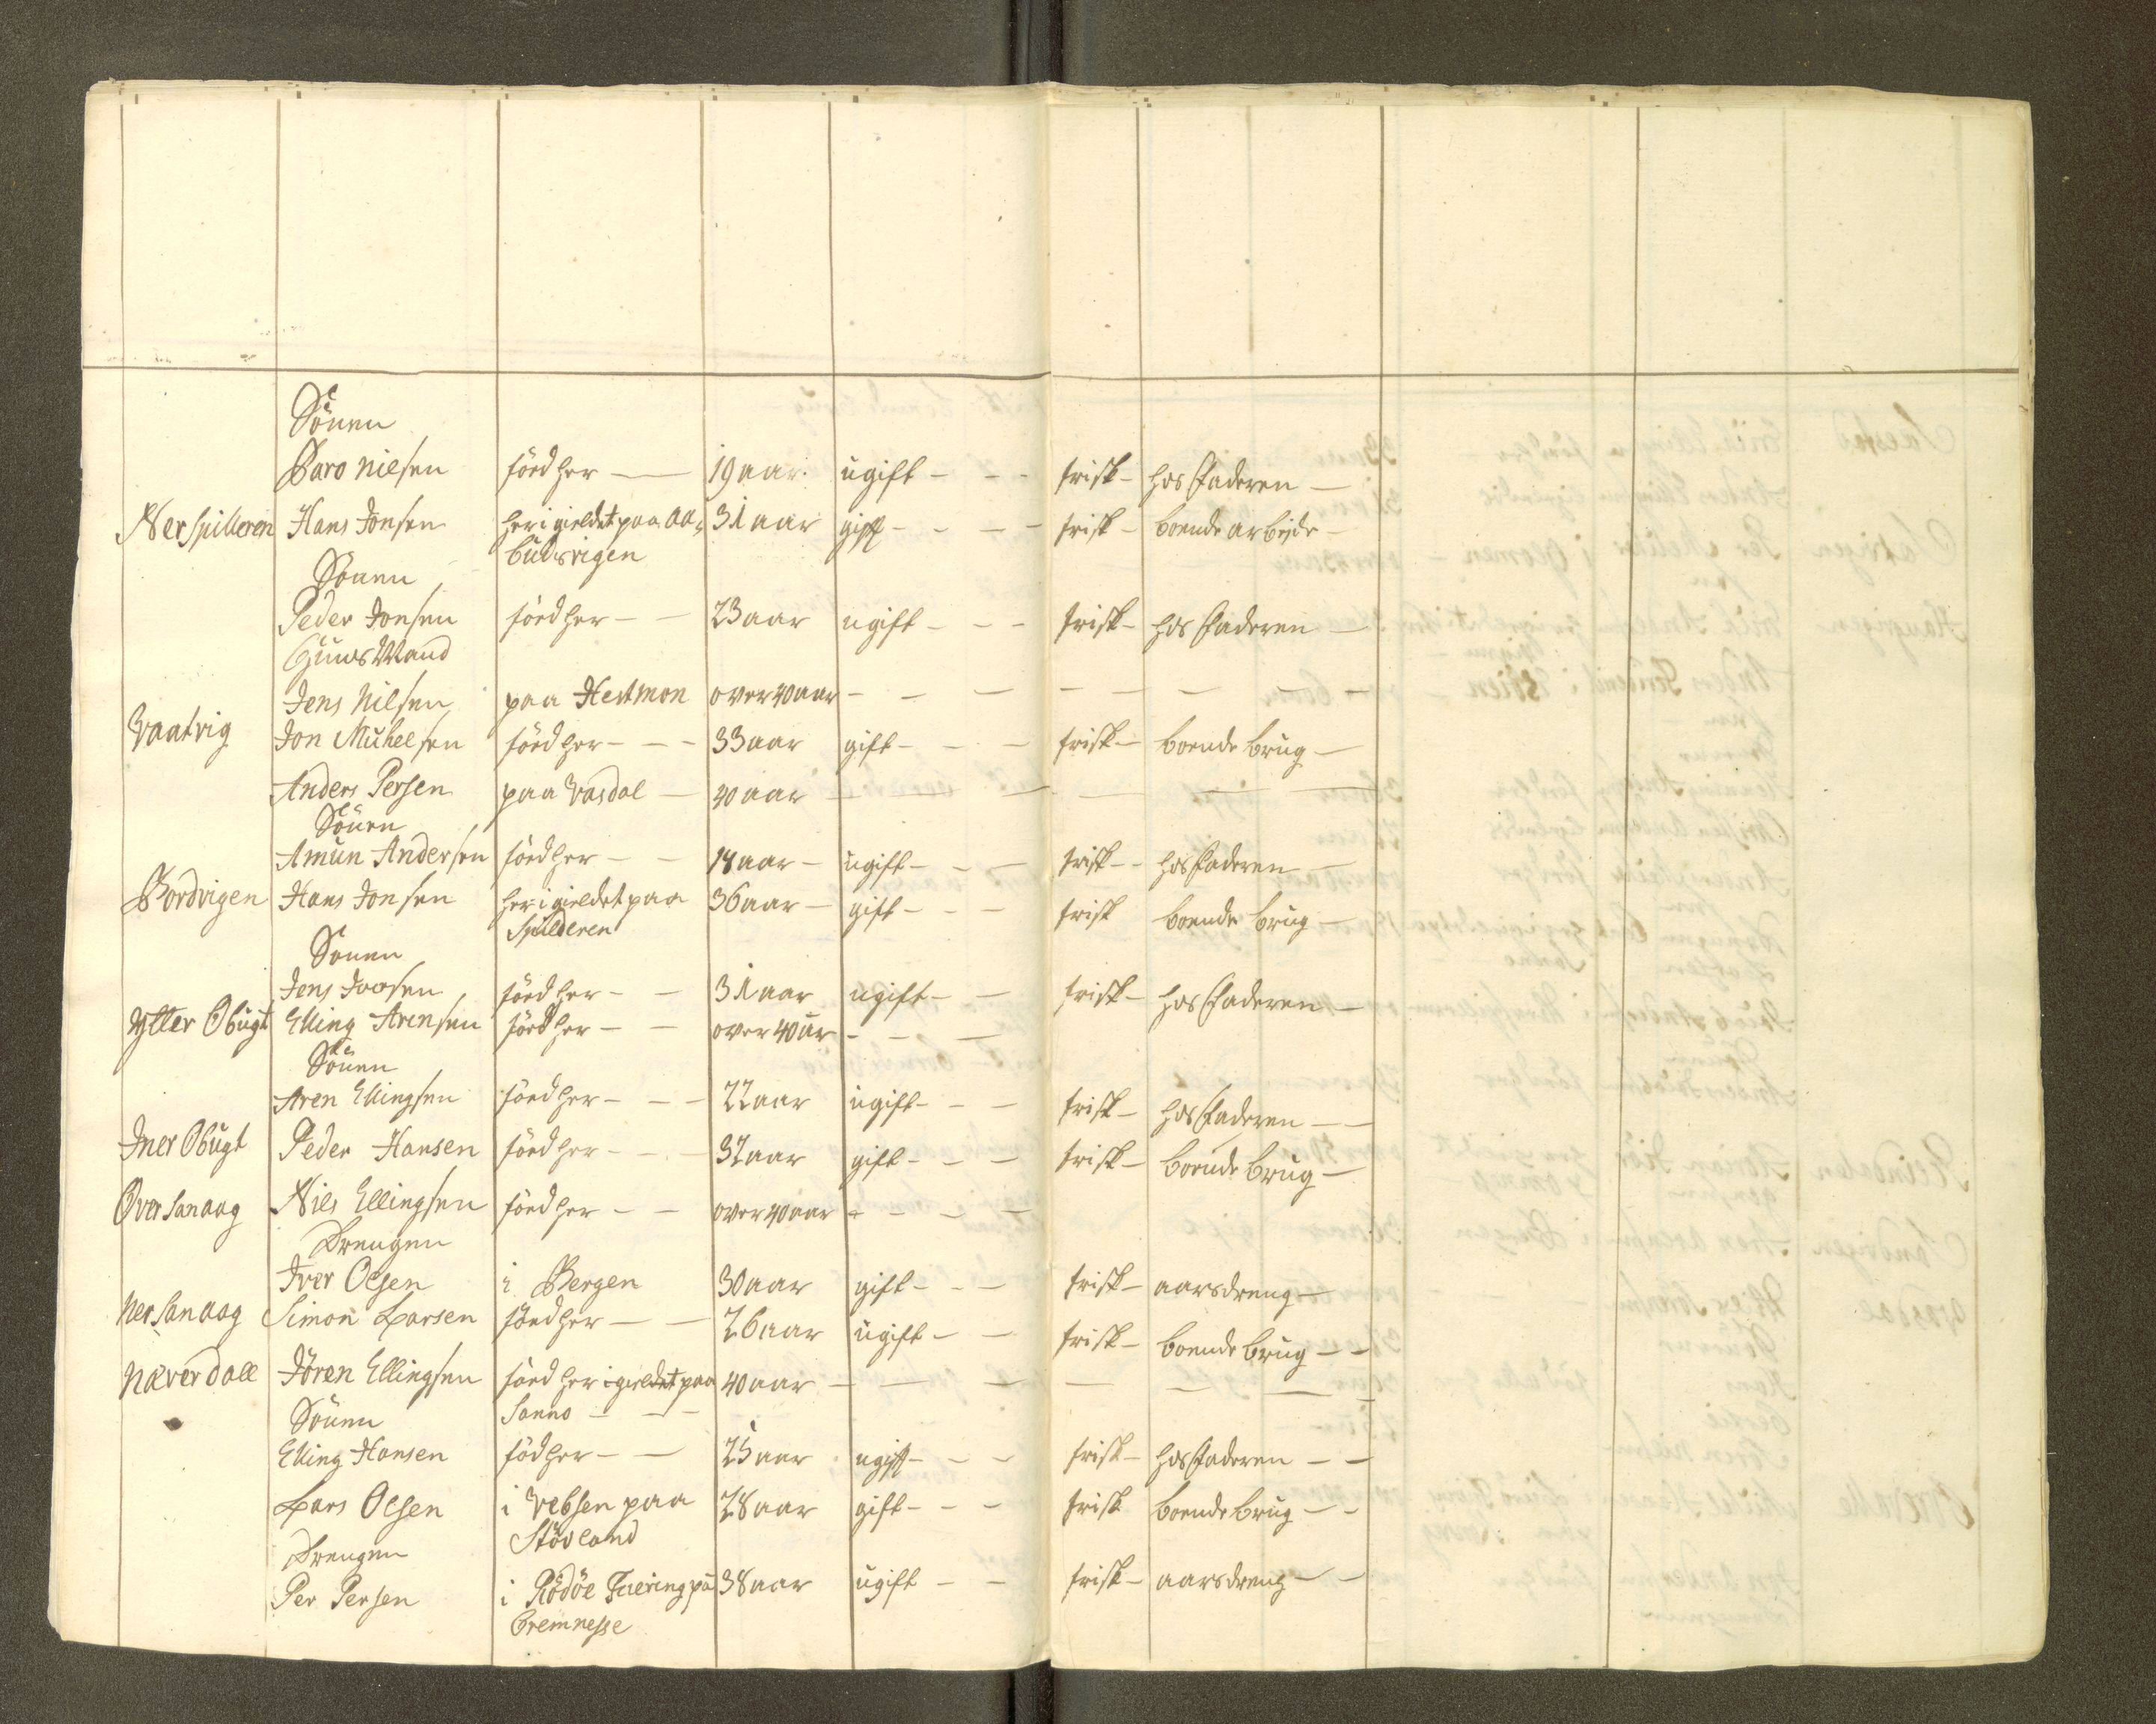 Sönen
Baro Nilsen fœd her — 19 aar. ugift - - - frisk - hos Faderen —
Ner Spilleren Hans Jonsen her i gieldet paa Aa, 31 aar gift - - - - frisk - boende arbejde -
budsvigen
Sönen
Peder Jonsen fœd her - — 23 aar ugift - - - frisk - hos Faderen —
Huus Mand
Jens Nilsen paa Hestmon over 40 aar - - — - — — - —
Vaatvig Jon Michelsen fœd her - - - 33 aar gift - - — frisk - boende brug —
Anders Persen paa Vasdal — 40 aar — — — - — — —
Sönen
Amun Andersen fœd her - - 18 aar - ugift - - — frisk - - hos Faderen —
Bordvigen Hans Jonsen her i gieldet paa 36 aar - gift - - — frisk boende brug —
Spilderen
Sönen
Jens Joosen fœd her - — 31 aar ugift - — frisk - hos Faderen —
Ytter Obugt Elling Arensen fœd her - — over 40 aar - - —
Sönen
Aren Ellingsen fœd her - - - 22 aar ugift - - — frisk - hos Faderen — —
Iner Obugt Peder Hansen fœd her - - - 32 aar gift - - — frisk - boende brug —
Over Sanaag Nils Ellingsen fœd her - — over 40 aar - - — —
Drengen
Iver Olsen i Bergen 30 aar gift - - — frisk - aarsdreng —
Ner Sanaag Simon Larsen fœd her — — 26 aar ugift - — frisk - boende brug - -
Næverdall Jören Ellingsen fœd her i gieldet paa 40 aar — — — — — — -
Sönen Sanno - - -
Elling Hansen föd her - — 25 aar ugift - - - frisk - hos Faderen — -
Lars Olsen i Vebsen paa 28 aar gift - - - frisk boende brug - -
Stövland
Drengen
Per Persen i Rödöe Fiering på 38 aar ugift - — frisk - aarsdreng — -
Bremnesse